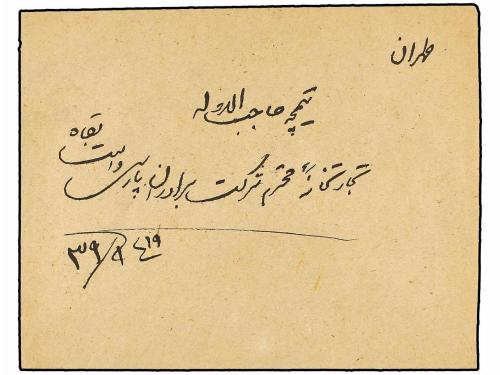 طهران
تیمچه حاجب الدوله
تجارتخانه محترم شرکت برادران پارسی دامت بقاه